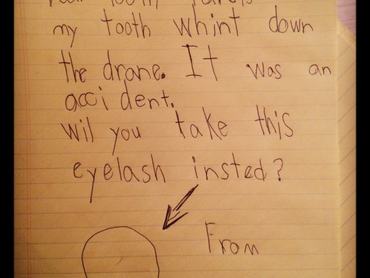 my tooth whint down
the drane. It was an
accident.
wil you take this
eyelash insted?
From